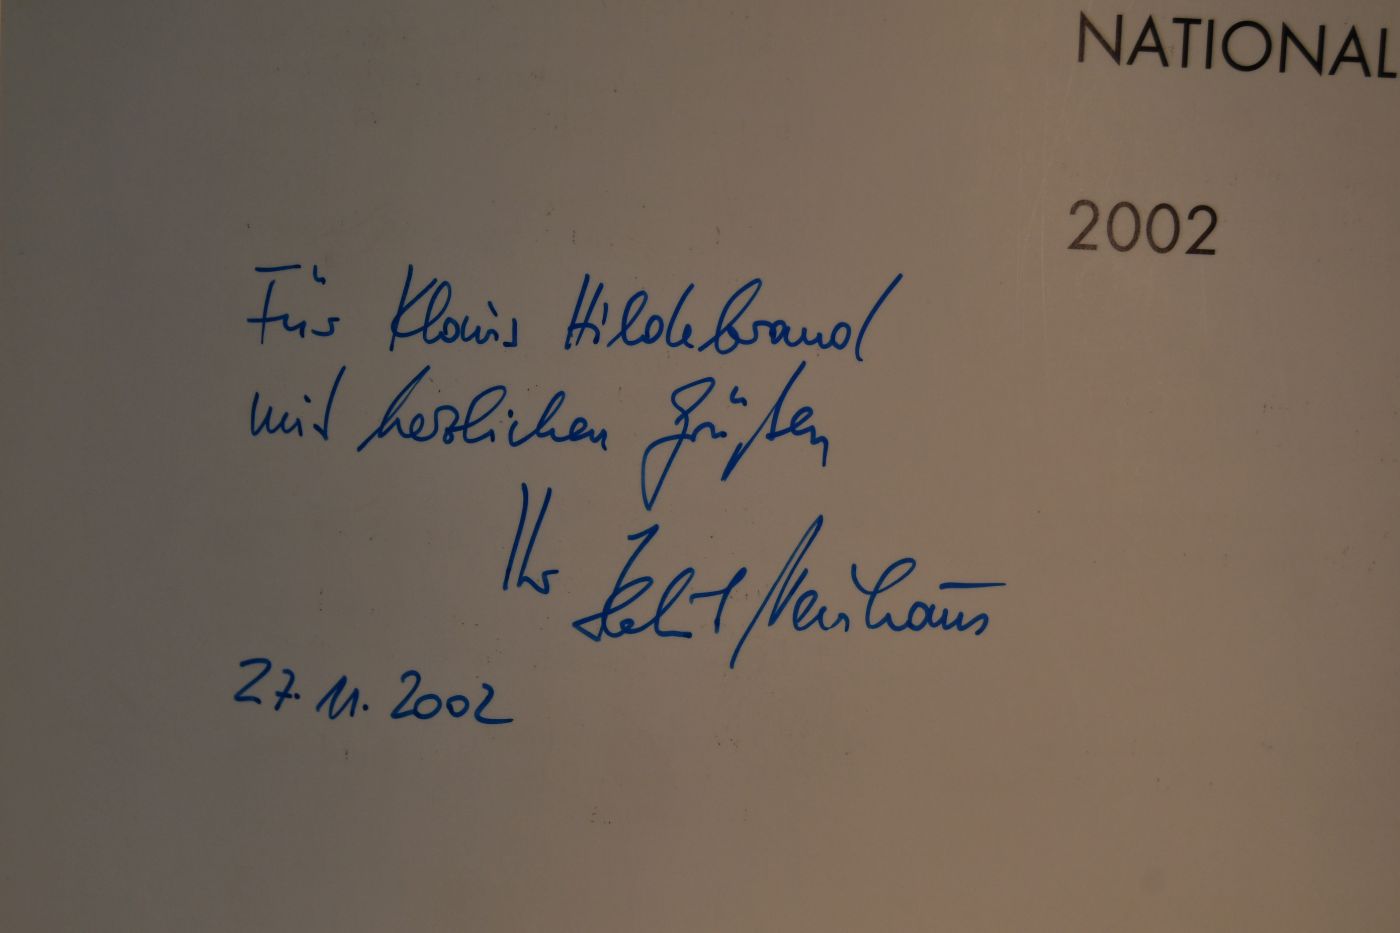 NATIONAL
2002
Für Klaus Hildebrand
mit herzlichen Grüßen
Ihr Helmut Neuhaus
27.11.2002